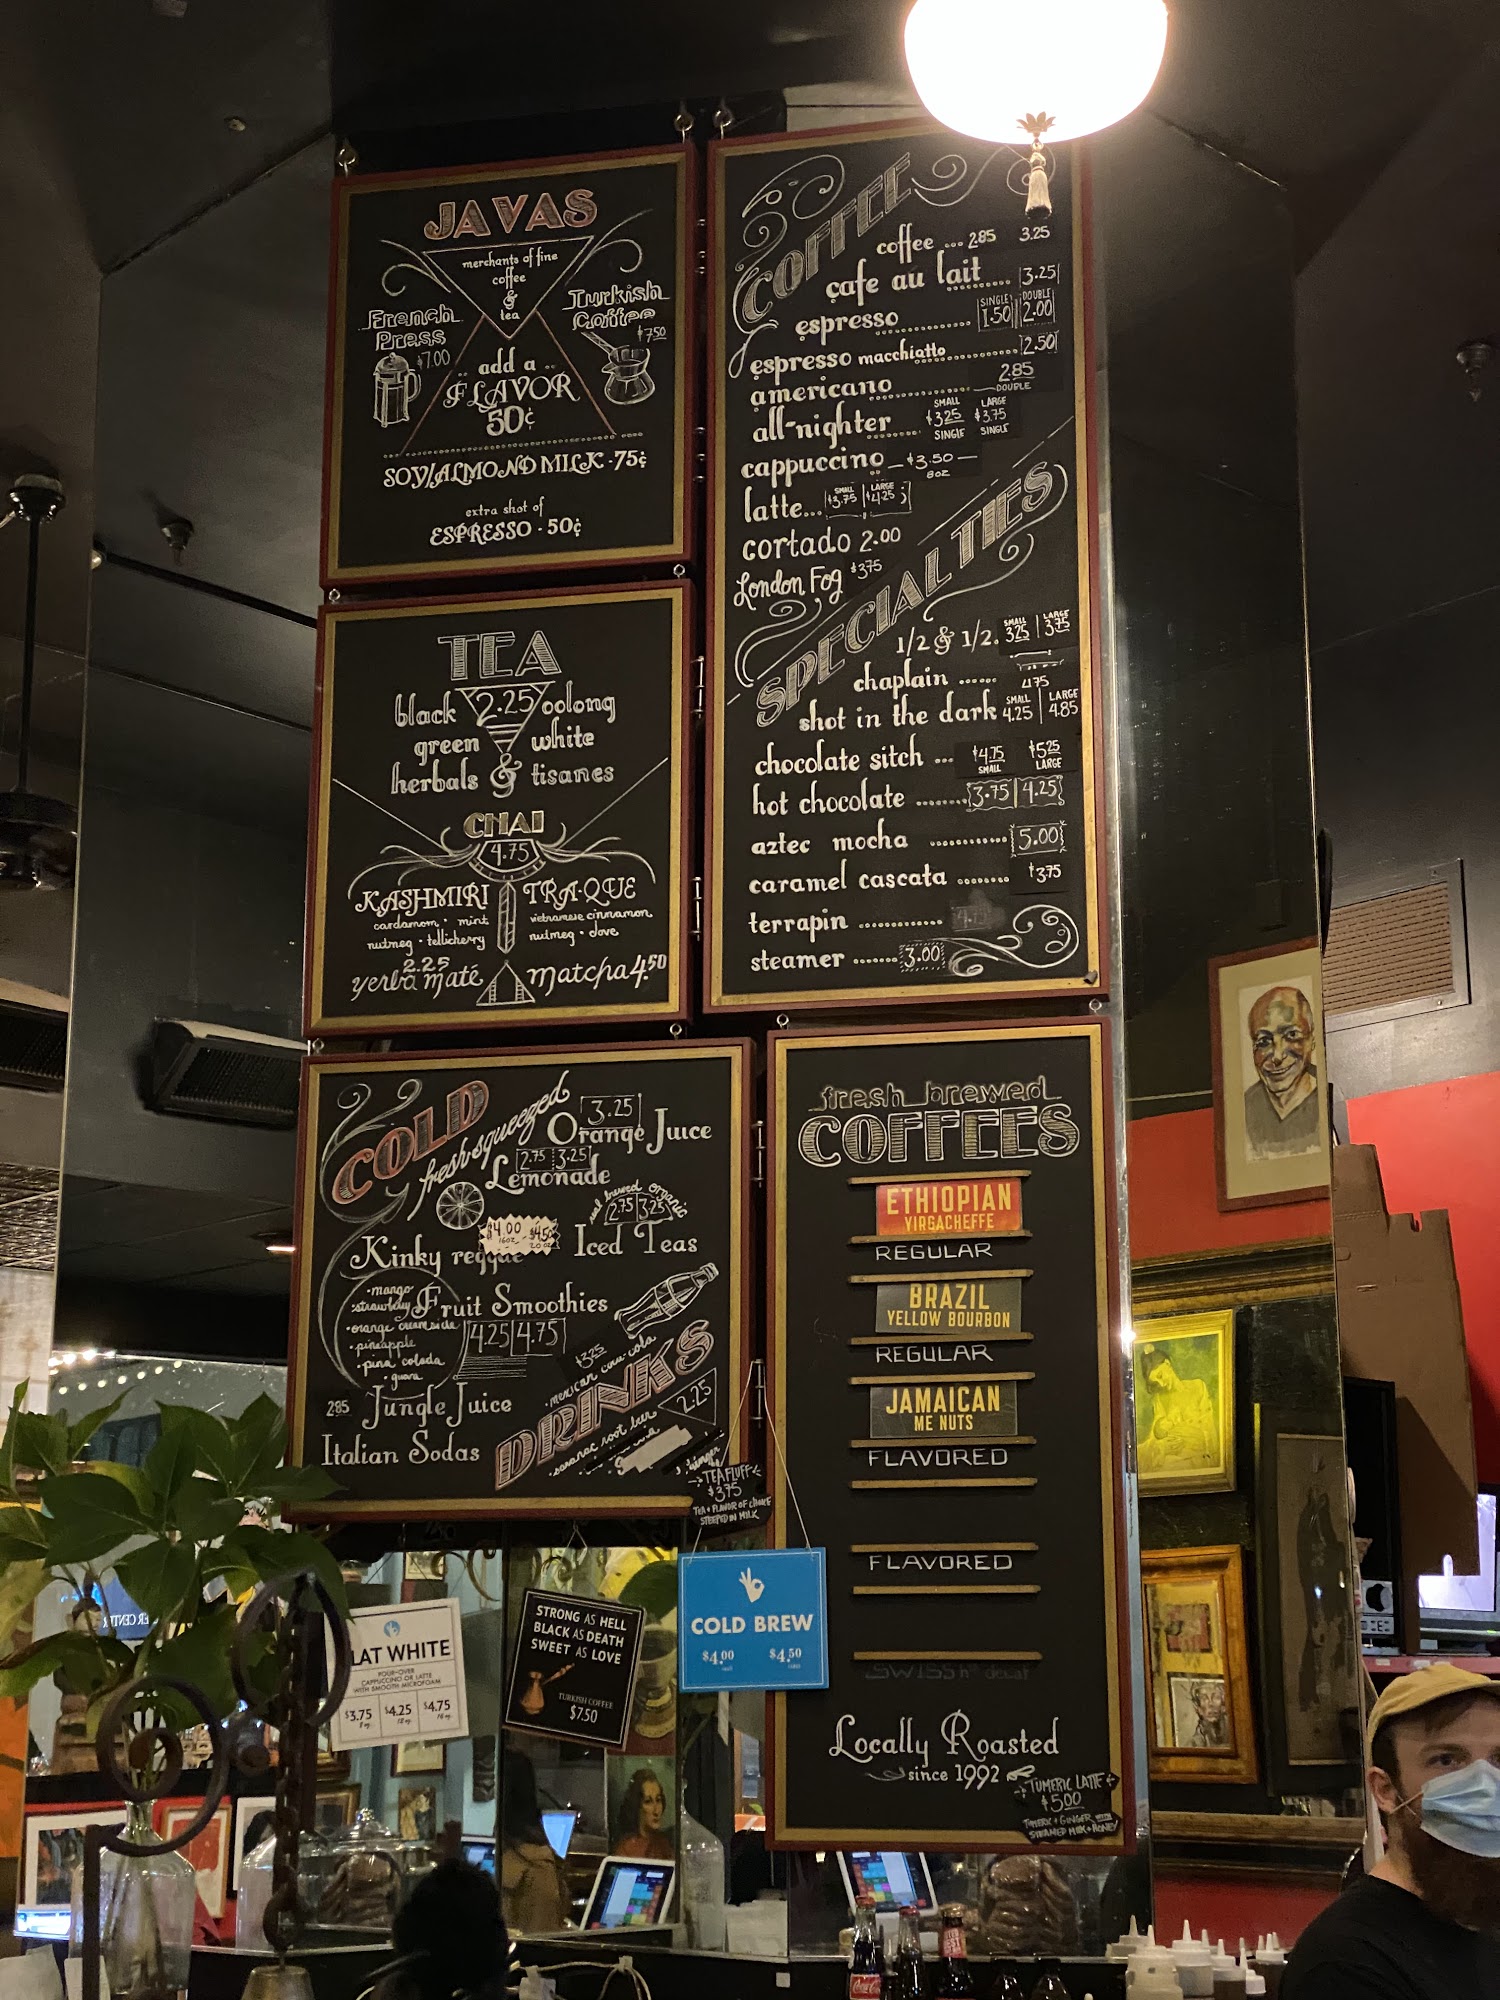 JAVAS
merchants of fine
coffee
&
tea
French
Press
$7.00
Turkish
Coffee
$7.50
add a
FLAVOR
50¢
SOY/ALMOND MILK - 75¢
extra shot of
ESPRESSO - 50¢
TEA
black 2.25 oolong
green white
herbals & tisanes
CHAI
4.75
KASHMIRI
cardamom · mint
nutmeg · tellicherry
TRA·QUE
vietnamese cinnamon
nutmeg · clove
2.25
yerba maté
matcha 4.50
COFFEE
coffee ... 2.85 3.25
cafe au lait ........ 3.25
SINGLE DOUBLE
espresso ............ 1.50 2.00
espresso macchiatto ............ 2.50
americano ............ 2.85
DOUBLE
SMALL LARGE
all-nighter ....... $3.25 $3.75
SINGLE SINGLE
cappuccino - $3.50 -
8oz
SMALL LARGE
latte... $3.75 $4.25
cortado 2.00
London Fog $3.75
SPECIALTIES
SMALL LARGE
1/2 & 1/2. 3.25 3.75
chaplain ...... 4.75
SMALL LARGE
shot in the dark 4.25 4.85
chocolate sitch ... $4.75 $5.25
SMALL LARGE
hot chocolate ........ 3.75 4.25
aztec mocha ............ 5.00
caramel cascata ........ $3.75
terrapin ............. 4.75
steamer ....... 3.00
COLD
fresh-squeezed
3.25
Orange Juice
2.75 3.25
Lemonade
organic
2.75 3.25
Iced Teas
$4.00 $4.50
16oz 20oz
Kinky reggae
· mango
· strawberry
· orange creamsicle
· pineapple
· pina colada
· guava
Fruit Smoothies
4.25 4.75
$3.25
mexican coca-cola
DRINKS
2.25
saranac root beer
ginger
2.85 Jungle Juice
Italian Sodas
TEA FLUFF
$3.75
TEA + FLAVOR OF CHOICE
STEEPED IN MILK
fresh brewed
COFFEES
ETHIOPIAN
YIRGACHEFFE
REGULAR
BRAZIL
YELLOW BOURBON
REGULAR
JAMAICAN
ME NUTS
FLAVORED
FLAVORED
SWISS h²º decaf
Locally Roasted
since 1992
TUMERIC LATTE
$5.00
TUMERIC + GINGER WITH
STEAMED MILK + HONEY
LAT WHITE
POUR-OVER
CAPPUCCINO OR LATTE
WITH SMOOTH MICROFOAM
$3.75 $4.25 $4.75
8 oz. 12 oz. 16 oz.
STRONG AS HELL
BLACK AS DEATH
SWEET AS LOVE
TURKISH COFFEE
$7.50
COLD BREW
$4.00 $4.50
Coca-Cola